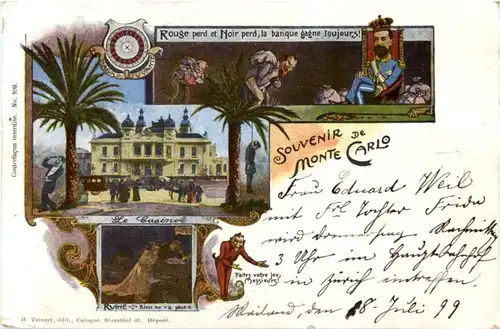 Rouge perd et Noir perd, la banque gagne toujours!
Contrefaçon interdite. No. 109.
SOUVENIR DE
MONTE CARLO
Le Casino
RUINÉ "Rien ne va plus"
Faites votre jeu,
Messieurs!
Frau Eduard Weil
mit Frl Tochter Frida
wird Donnerstag Nachmitt
3 Uhr im Hauptbahnhof
in Zürich eintreffen
Mailand, den 18 Juli 99
Cologne. Déposé.